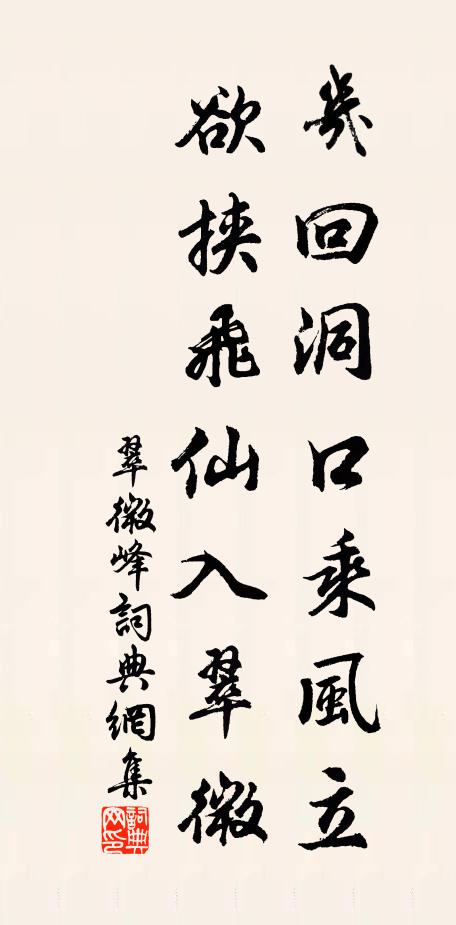 幾回洞口乘風立
欲挾飛仙入翠微
翠微峰詞典網集
詞典網印